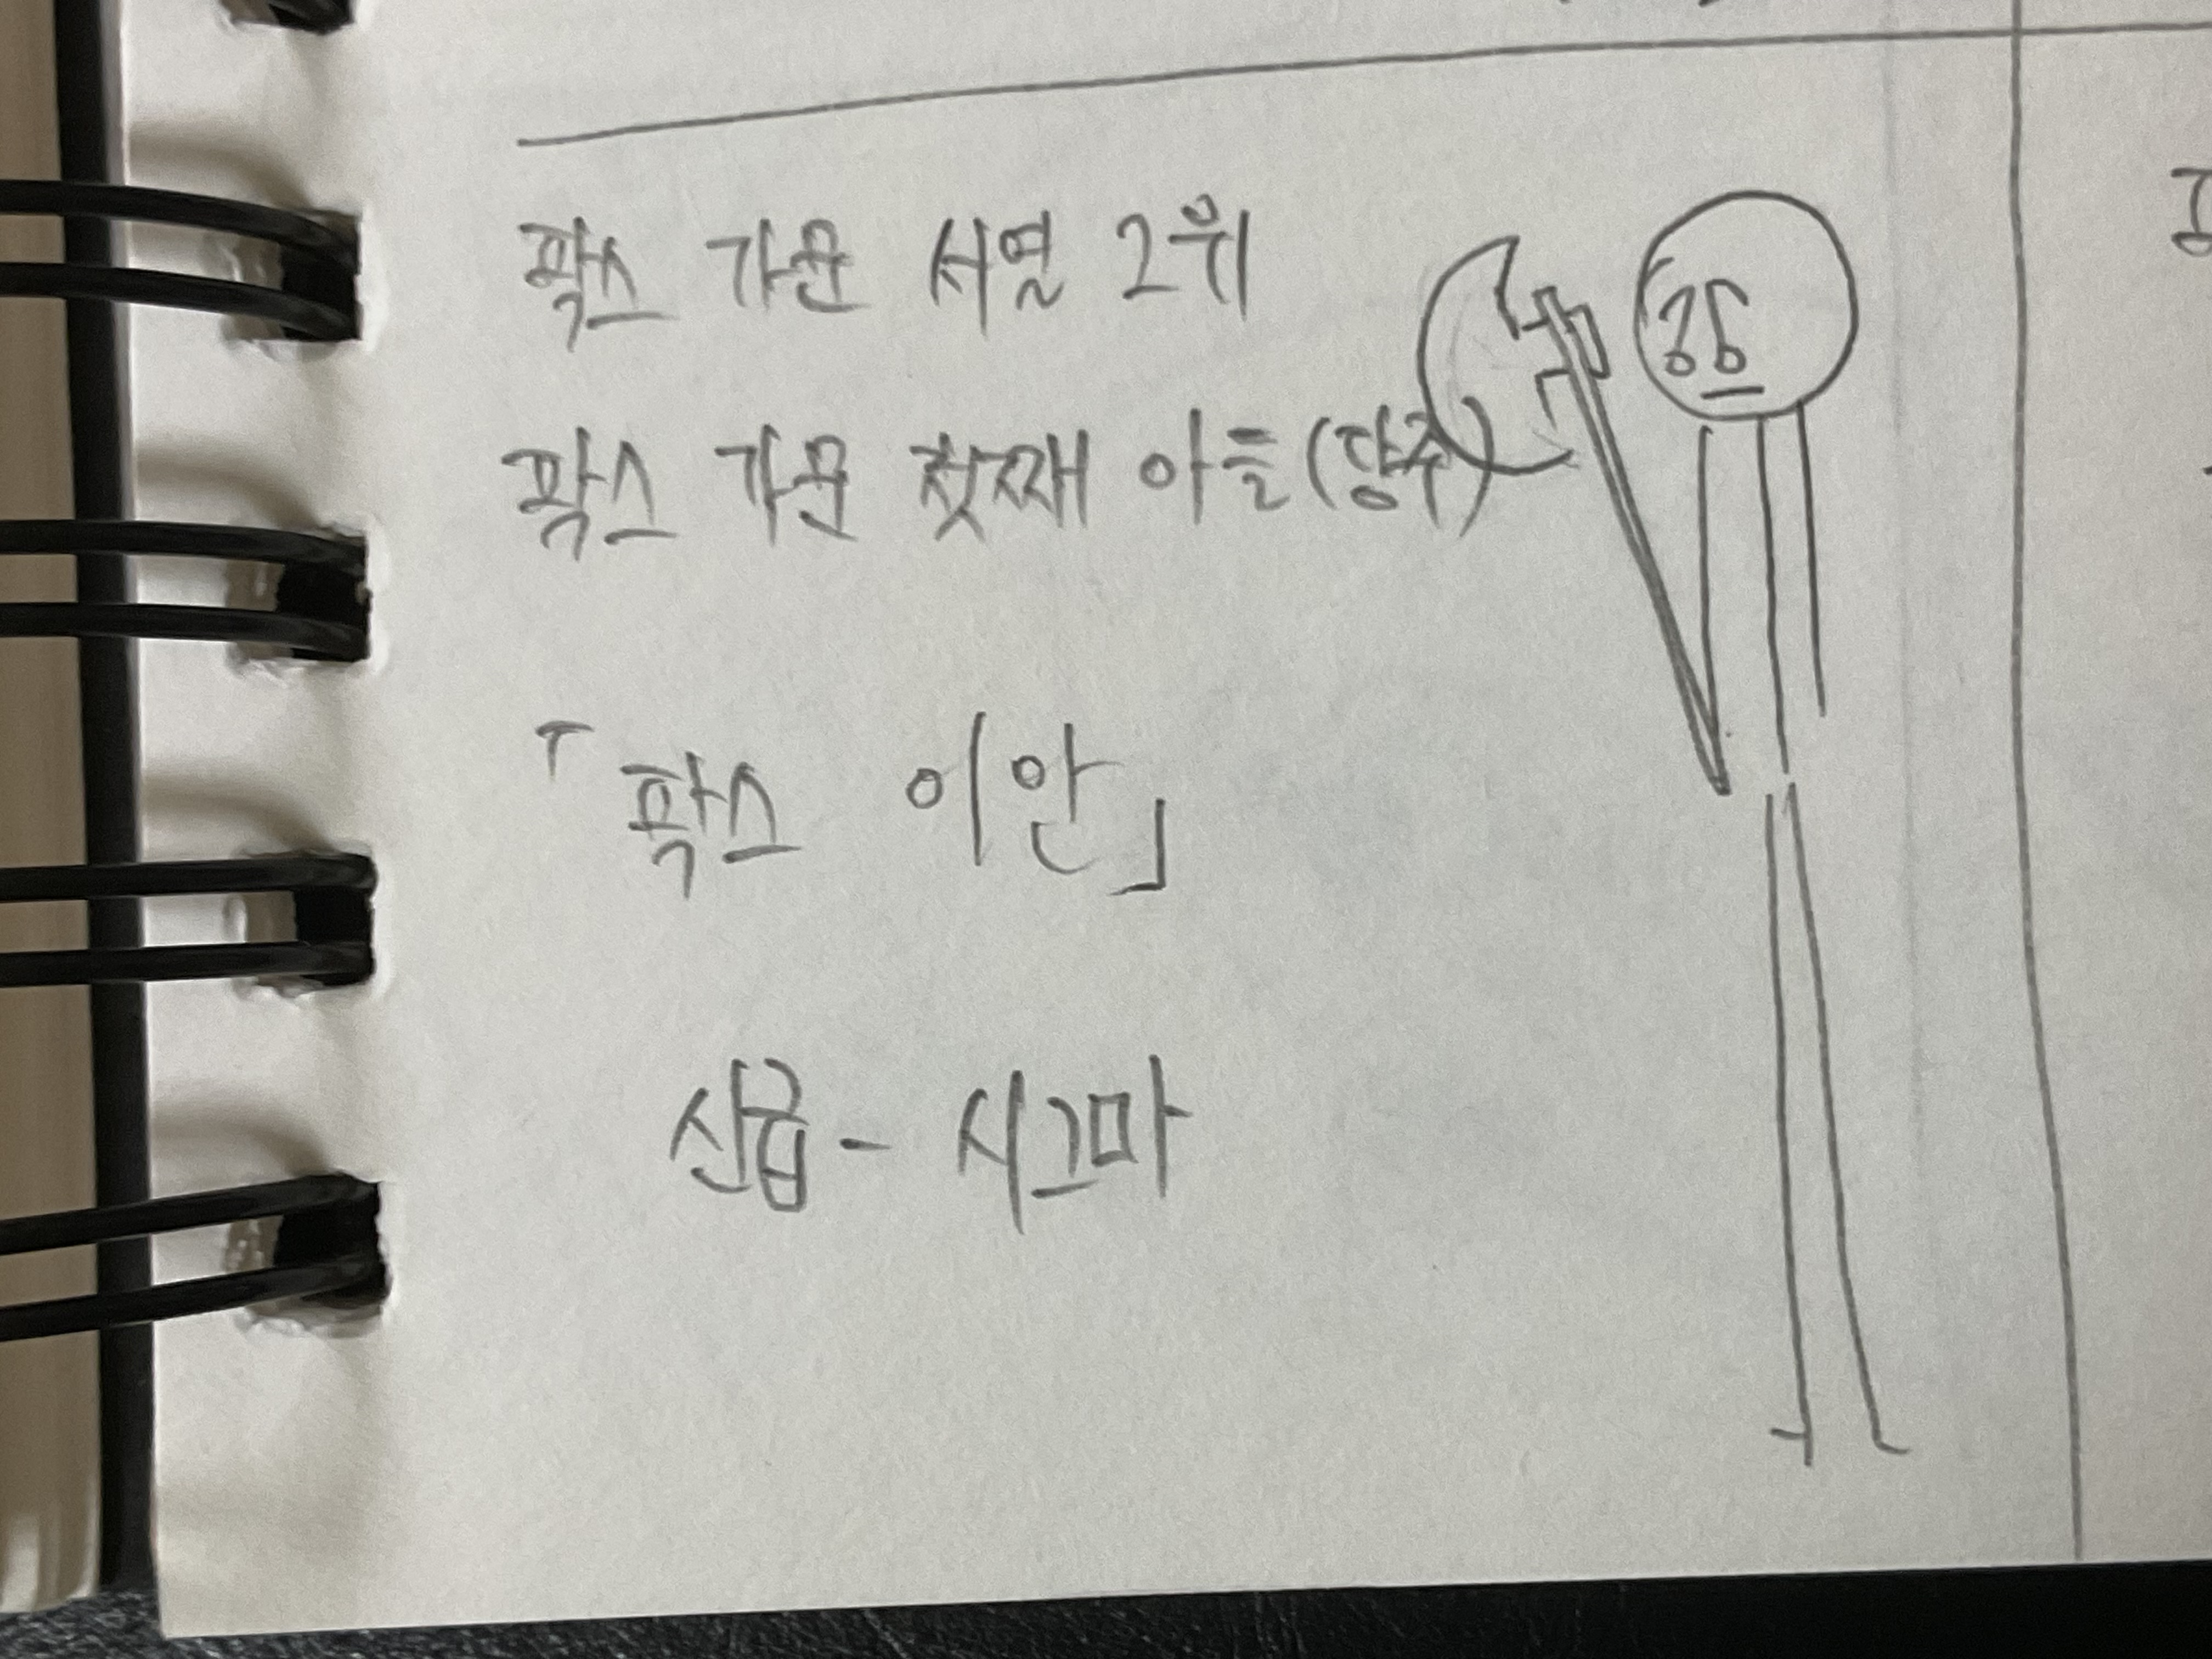 팍스 가문 서열 2위
팍스 가문 첫째 아들(당주)
「팍스 이안」
신급 - 시그마